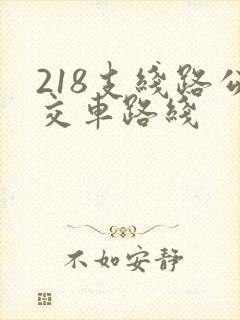 218支线路公
交车路线
不如安静